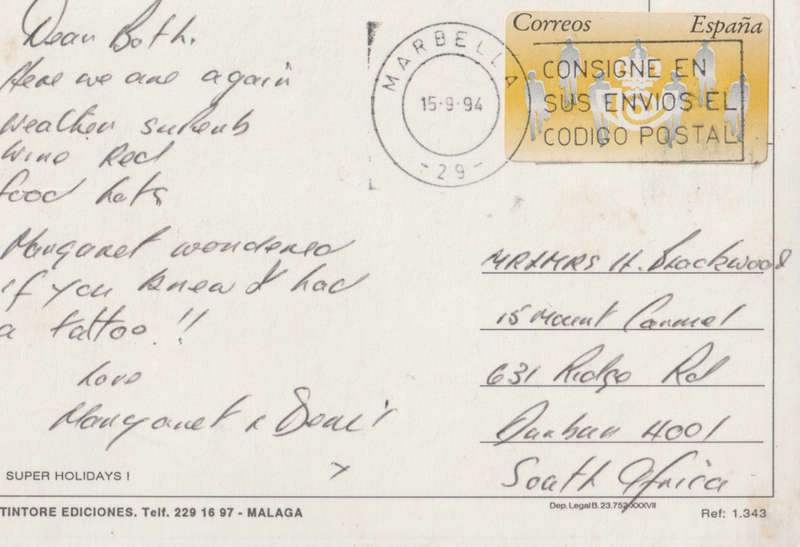 Dear Both.
Here we are again
weather superb
wine Red
food lots
Margaret wondered
if you knew I had
a tattoo.!!
Love
Margaret & Denis
SUPER HOLIDAYS !
TINTORE EDICIONES. Telf. 229 16 97 - MALAGA
MARBELLA
15-9-94
-29-
Correos España
CONSIGNE EN
SUS ENVIOS EL
CODIGO POSTAL
MR & MRS H. Brackwood
15 Mount Carmel
631 Ridge Rd
Durban 4001
South Africa
Dep. Legal B. 23.752-XXXVII
Ref: 1.343